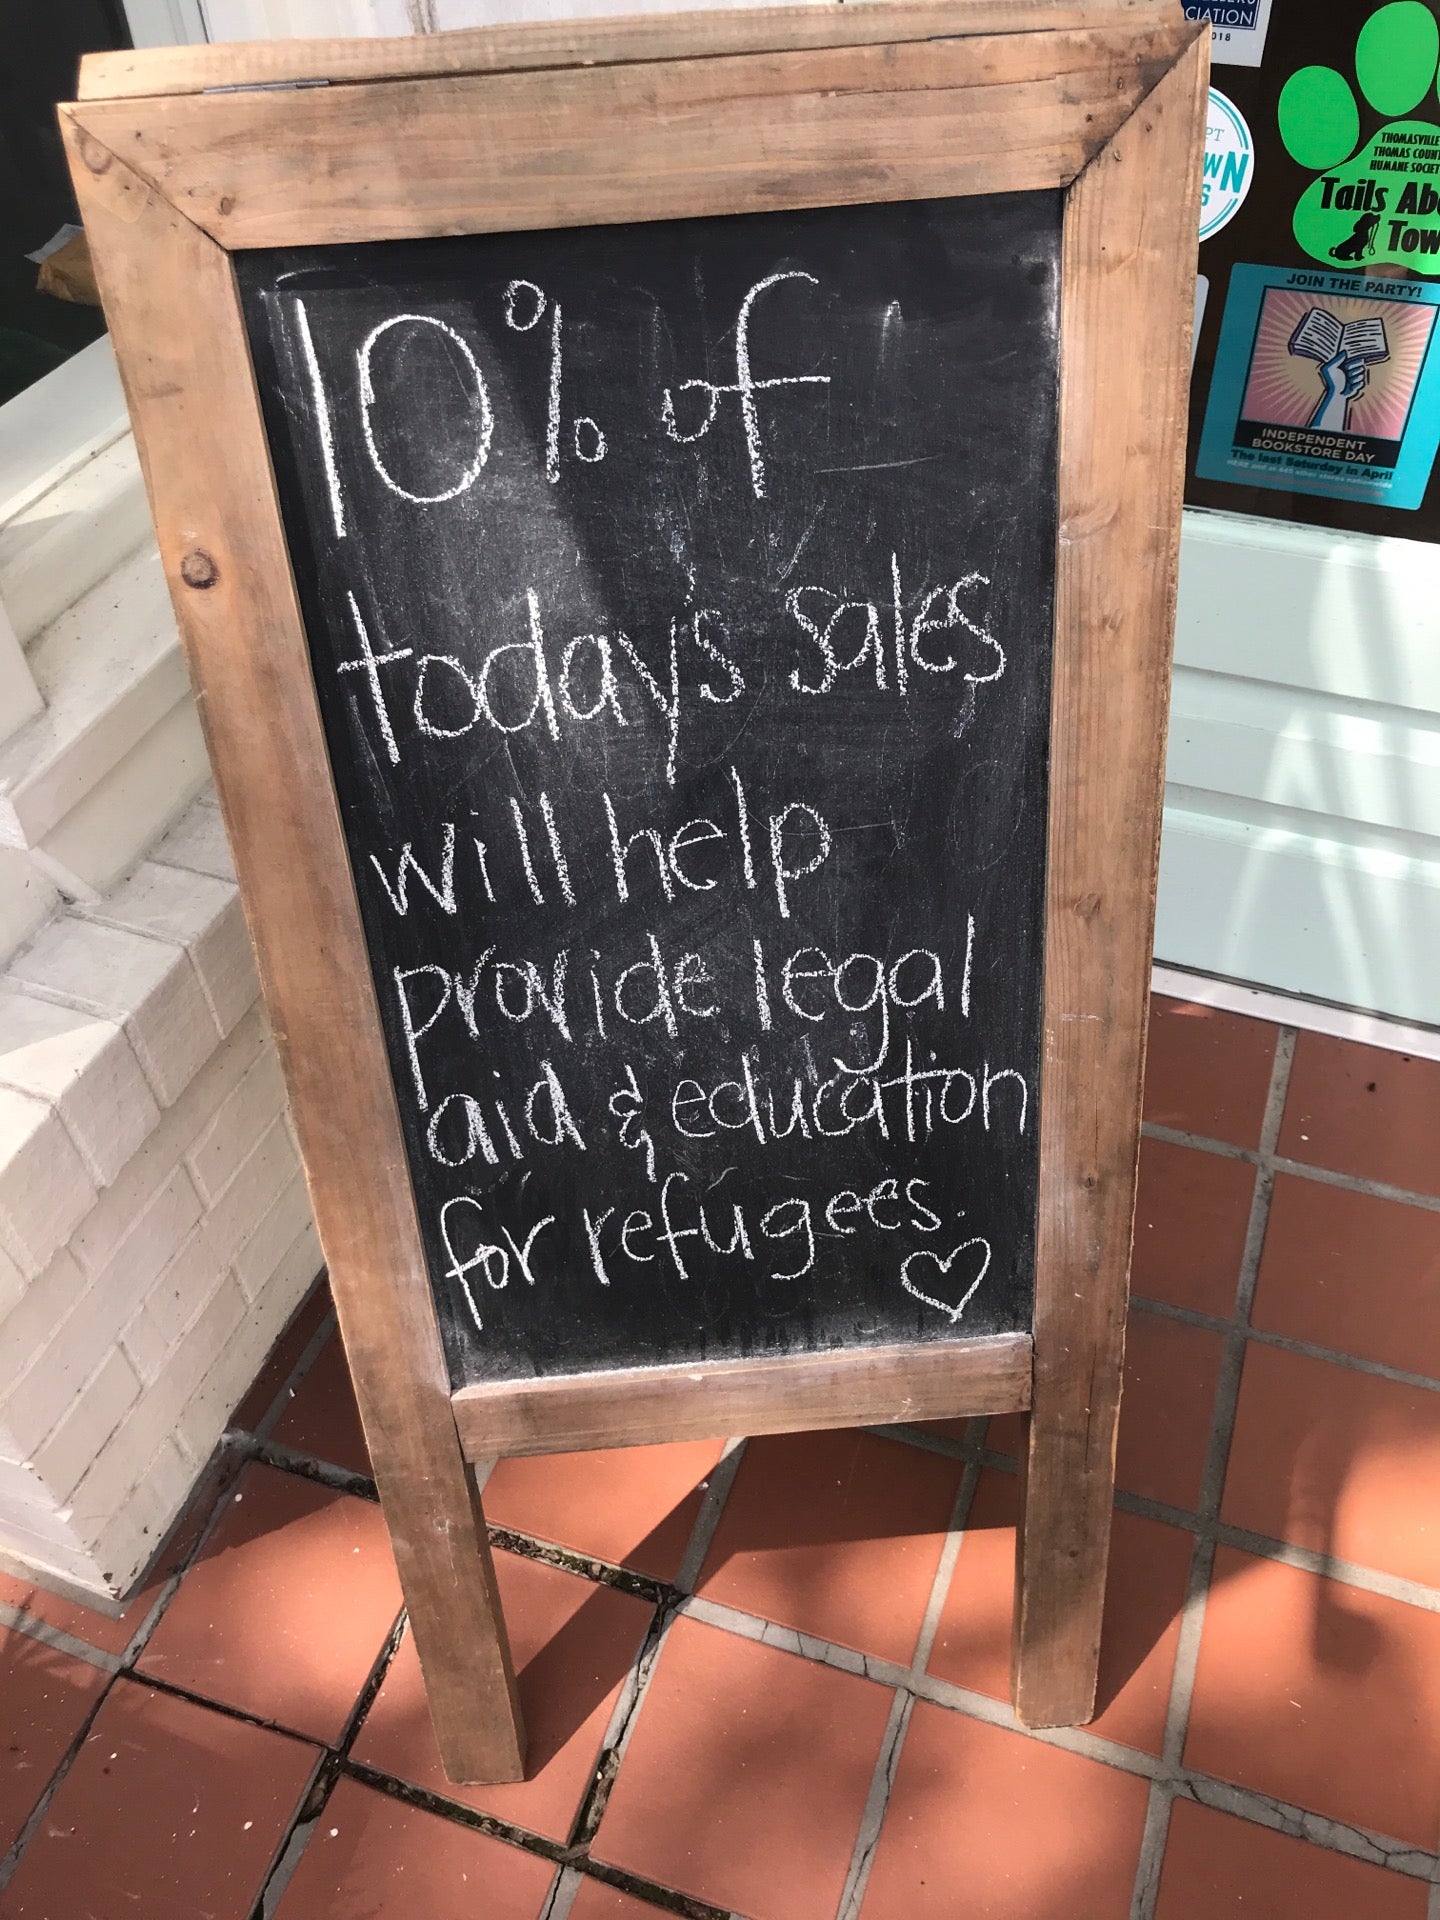 10% of
today's sales
will help
provide legal
aid & education
for refugees.
CIATION
2018
PT
WN
S
THOMASVILLE
THOMAS COUNT
HUMANE SOCIET
Tails Abo
Tow
JOIN THE PARTY!
INDEPENDENT
BOOKSTORE DAY
The last Saturday in April
HERE and at